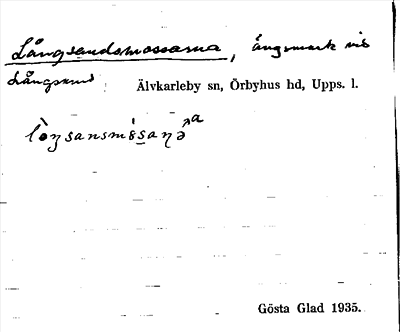 Långsandsmossarna, ängsmark vid
Långsand
Älvkarleby sn, Örbyhus hd, Upps. l.
Gösta Glad 1935.